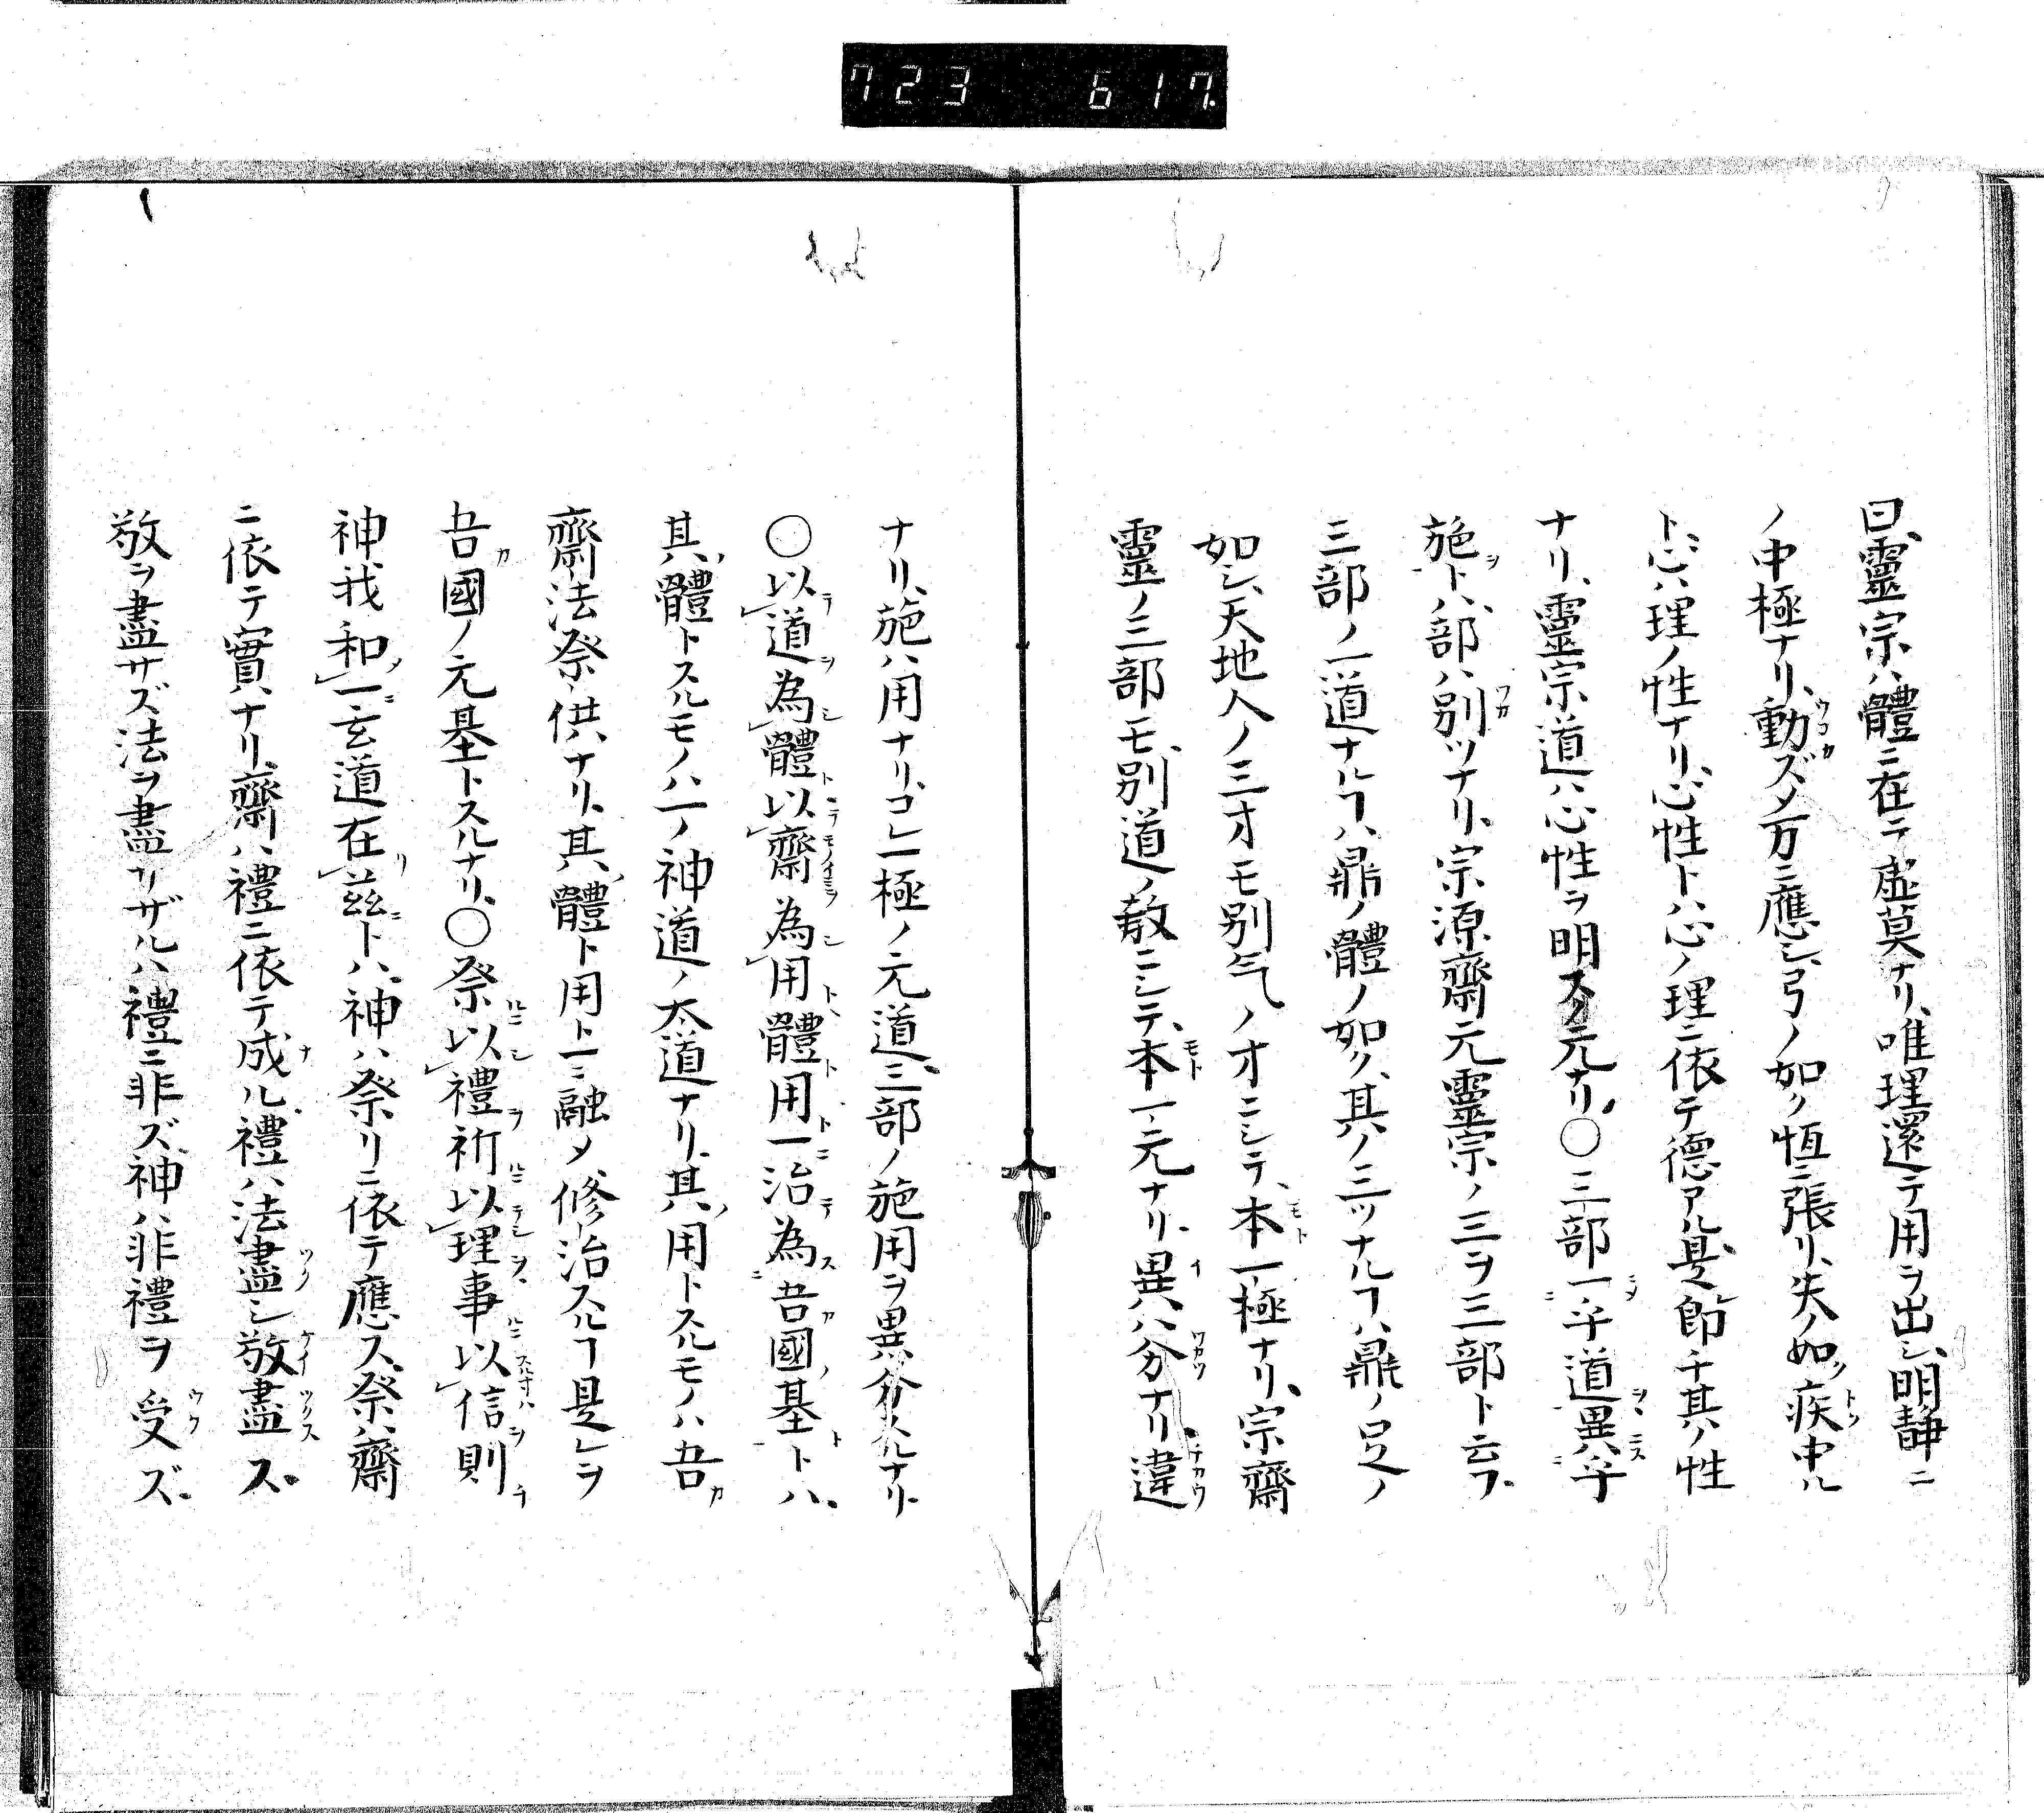 723 617.
曰、靈宗ハ體ニ在テ虛莫ナリ、唯理還テ用ヲ出シ、明靜ニ
ノ中極ナリ、動ズメ万ニ應シ、弓ノ如ク恒ニ張リ、矢ノ如ク疾中ル
ト、心ハ理ノ性ナリ、心性トハ心ノ理ニ依テ德アル、是節チ其ノ性
ナリ、靈宗道ハ心性ヲ明スノ元ナリ、○三部一ニ乎道異ニ乎
施トハ、部ハ別ツナリ、宗源齋元靈宗ノ三ヲ三部ト云フ、
三部ノ一道ナルヿハ鼎ノ體ノ如ク、其ノ三ツナルヿハ鼎ノ足ノ
如シ、天地人ノ三才モ別気ノ才ニシテ、本一極ナリ、宗齋
靈ノ三部モ、別道ノ敎ニシテ、本一元ナリ、異ハ分ナリ違
ナリ、施ハ用ナリ、コレ一極ノ元道、三部ノ施用ヲ異分スルナリ、
○以道為體以齋為用體用一治為吾國基トハ、
其體トスルモノハ一ノ神道ノ太道ナリ、其用トスルモノハ吾
齋法祭供ナリ、其體ト用ト一ニ融メ修治スルヿ是レヲ
吾國ノ元基トスルナリ、○祭以禮祈以理事以信則
神我和一玄道在茲トハ、神ハ祭リニ依テ應ス、祭ハ齋
ニ依テ實ナリ、齋ハ禮ニ依テ成ル、禮ハ法盡シ敬盡ス、
敬ヲ盡サズ法ヲ盡サザルハ禮ニ非ズ、神ハ非禮ヲ受ズ、